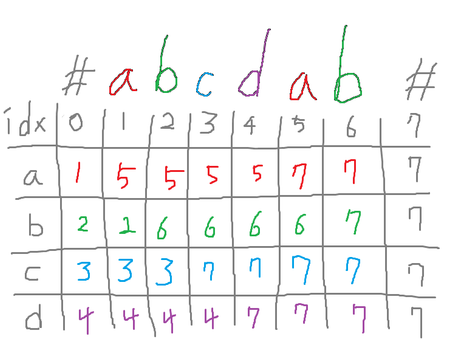 # a b c d a b #
idx 0 1 2 3 4 5 6 7
a 1 5 5 5 5 7 7 7
b 2 2 6 6 6 6 7 7
c 3 3 3 7 7 7 7 7
d 4 4 4 4 7 7 7 7